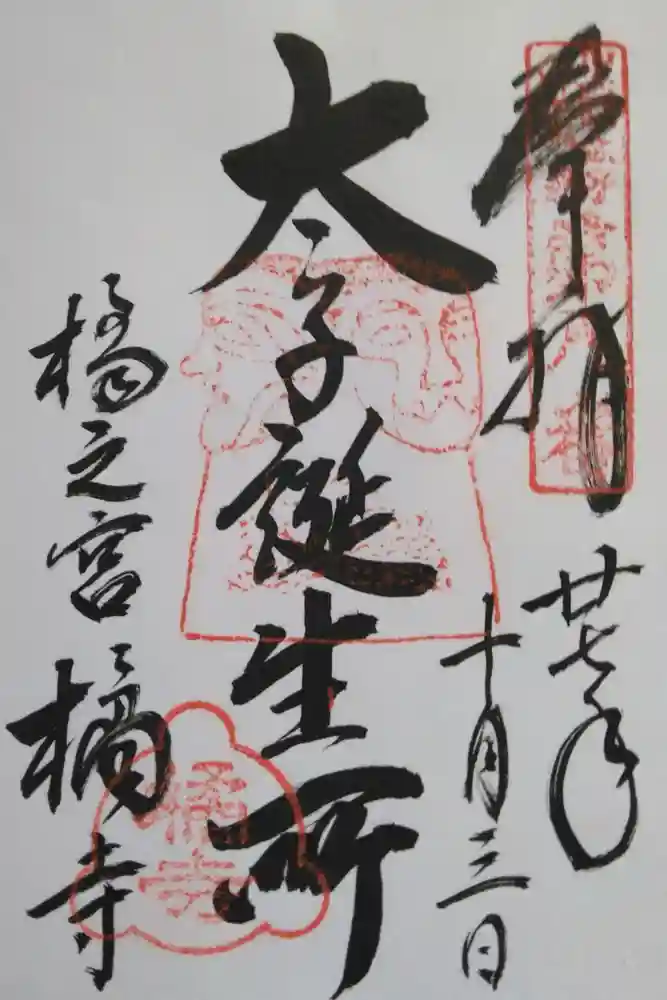 奉拝
廿七年
十月三日
太子誕生所
橘之宮
橘寺
橘寺